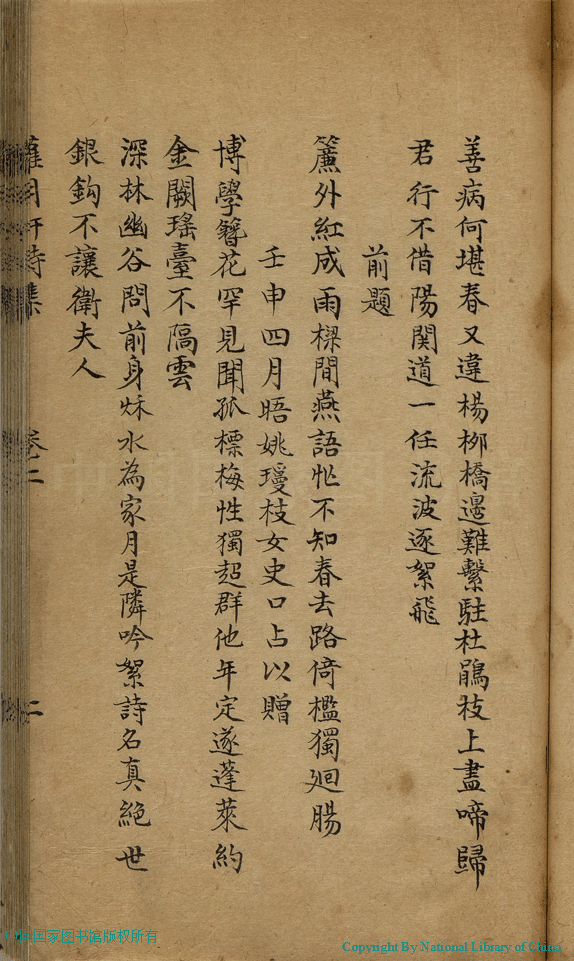 善病何堪春又違楊柳橋邊難繫駐杜鵑枝上盡啼歸
君行不借陽関道一任流波逐絮飛
前題
簾外紅成雨樑間燕語忙不知春去路倚檻獨廻腸
壬申四月晤姚瓊枝女史口占以贈
博學簪花罕見聞孤標梅性獨超群他年定遂蓬萊約
金闕瑤臺不隔雲
深林幽谷問前身秌水為家月是隣吟絮詩名真絕世
銀鈎不讓衛夫人
蘿月軒詩集 卷二 二
中国国家图书馆版权所有
Copyright By National Library of China